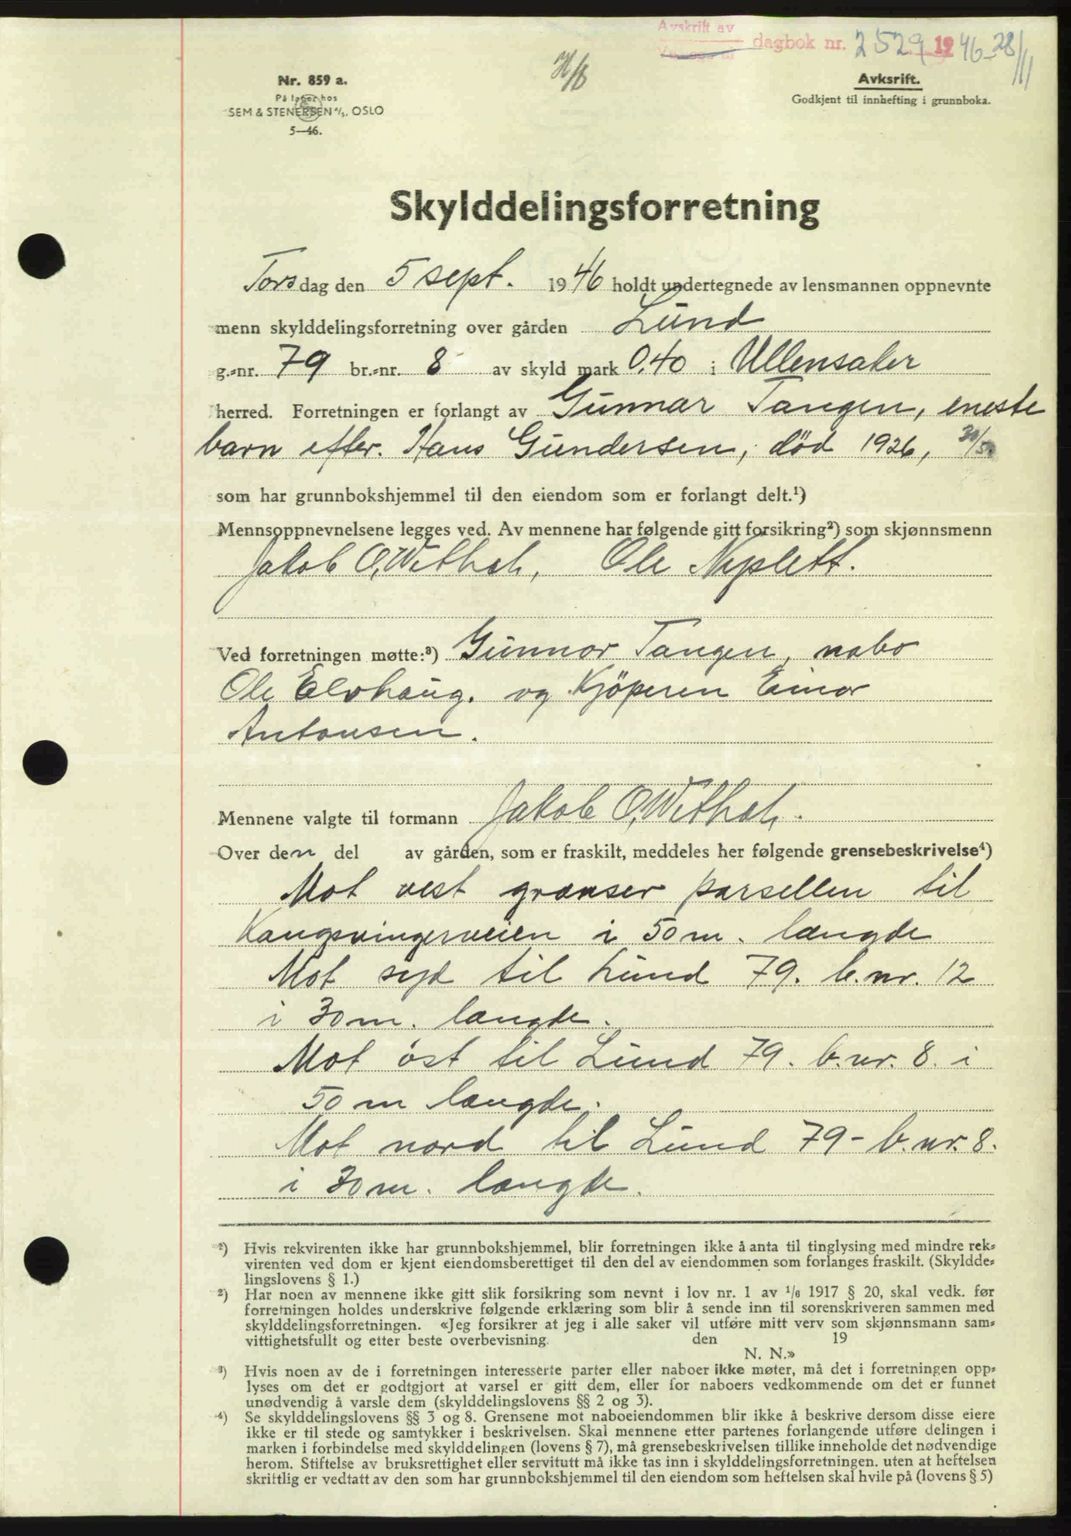 Avskrift av
dagbok nr. 2529 1946 - 28/11
Nr. 859 a.
På lager hos
SEM & STENERSEN A/S, OSLO
5—46.
Avksrift.
Godkjent til innhefting i grunnboka.
Skylddelingsforretning
Torsdag den 5 sept. 1946 holdt undertegnede av lensmannen oppnevnte
menn skylddelingsforretning over gården Lund
g.-nr. 79 br.-nr. 8 av skyld mark 0,40 i Ullensaker
herred. Forretningen er forlangt av Gunnar Tangen, eneste
barn efter. Hans Gundersen, død 1926, 30/5.
som har grunnbokshjemmel til den eiendom som er forlangt delt.¹)
Mennsoppnevnelsene legges ved. Av mennene har følgende gitt forsikring²) som skjønnsmenn
Jakob O, Wethal, Ole Nyslett.
Ved forretningen møtte:³) Gunnar Tangen, nabo
Ole Elvhaug. og Kjöperen Einar
Antonsen.
Mennene valgte til formann Jakob O, Wethal.
Over den del av gården, som er fraskilt, meddeles her følgende grensebeskrivelse⁴)
Mot vest grænser parsellen til
Kongsvingerveien i 50 m. længde
Mot syd til Lund 79. b.nr. 12
i 30 m. længde.
Mot öst til Lund 79. b.nr. 8. i
50 m længde.
Mot nord til Lund 79 - b.nr. 8.
i 30 m. længde.
¹) Hvis rekvirenten ikke har grunnbokshjemmel, blir forretningen ikke å anta til tinglysing med mindre rek-
virenten ved dom er kjent eiendomsberettiget til den del av eiendommen som forlanges fraskilt. (Skyldde-
lingslovens § 1.)
²) Har noen av mennene ikke gitt slik forsikring som nevnt i lov nr. 1 av 1/6 1917 § 20, skal vedk. før
forretningen holdes underskrive følgende erklæring som blir å sende inn til sorenskriveren sammen med
skylddelingsforretningen. «Jeg forsikrer at jeg i alle saker vil utføre mitt verv som skjønnsmann sam-
vittighetsfullt og etter beste overbevisning. den 19
N. N.»
³) Hvis noen av de i forretningen interesserte parter eller naboer ikke møter, må det i forretningen opp-
lyses om det er godtgjort at varsel er gitt dem, eller for naboers vedkommende om det er funnet
unødvendig å varsle dem (skylddelingslovens §§ 2 og 3).
⁴) Se skylddelingslovens §§ 3 og 8. Grensene mot naboeiendommen blir ikke å beskrive dersom disse eiere
ikke er til stede og samtykker i beskrivelsen. Skal mennene etter partenes forlangende utføre delingen i
marken i forbindelse med skylddelingen (lovens § 7), må grensebeskrivelsen tillike inneholde det nødvendige
herom. Stiftelse av bruksrettighet eller servitutt må ikke tas inn i skylddelingsforretningen. uten at heftelsen
skriftlig er vedtatt av den som har grunnbokshjemmel til den eiendom som heftelsen skal hvile på (lovens § 5)